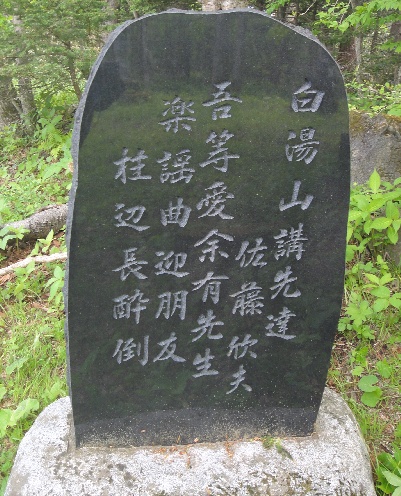 白湯山講先達
佐藤欣夫
吾等愛余有先生
楽謡曲迎朋友
桂辺長酔倒